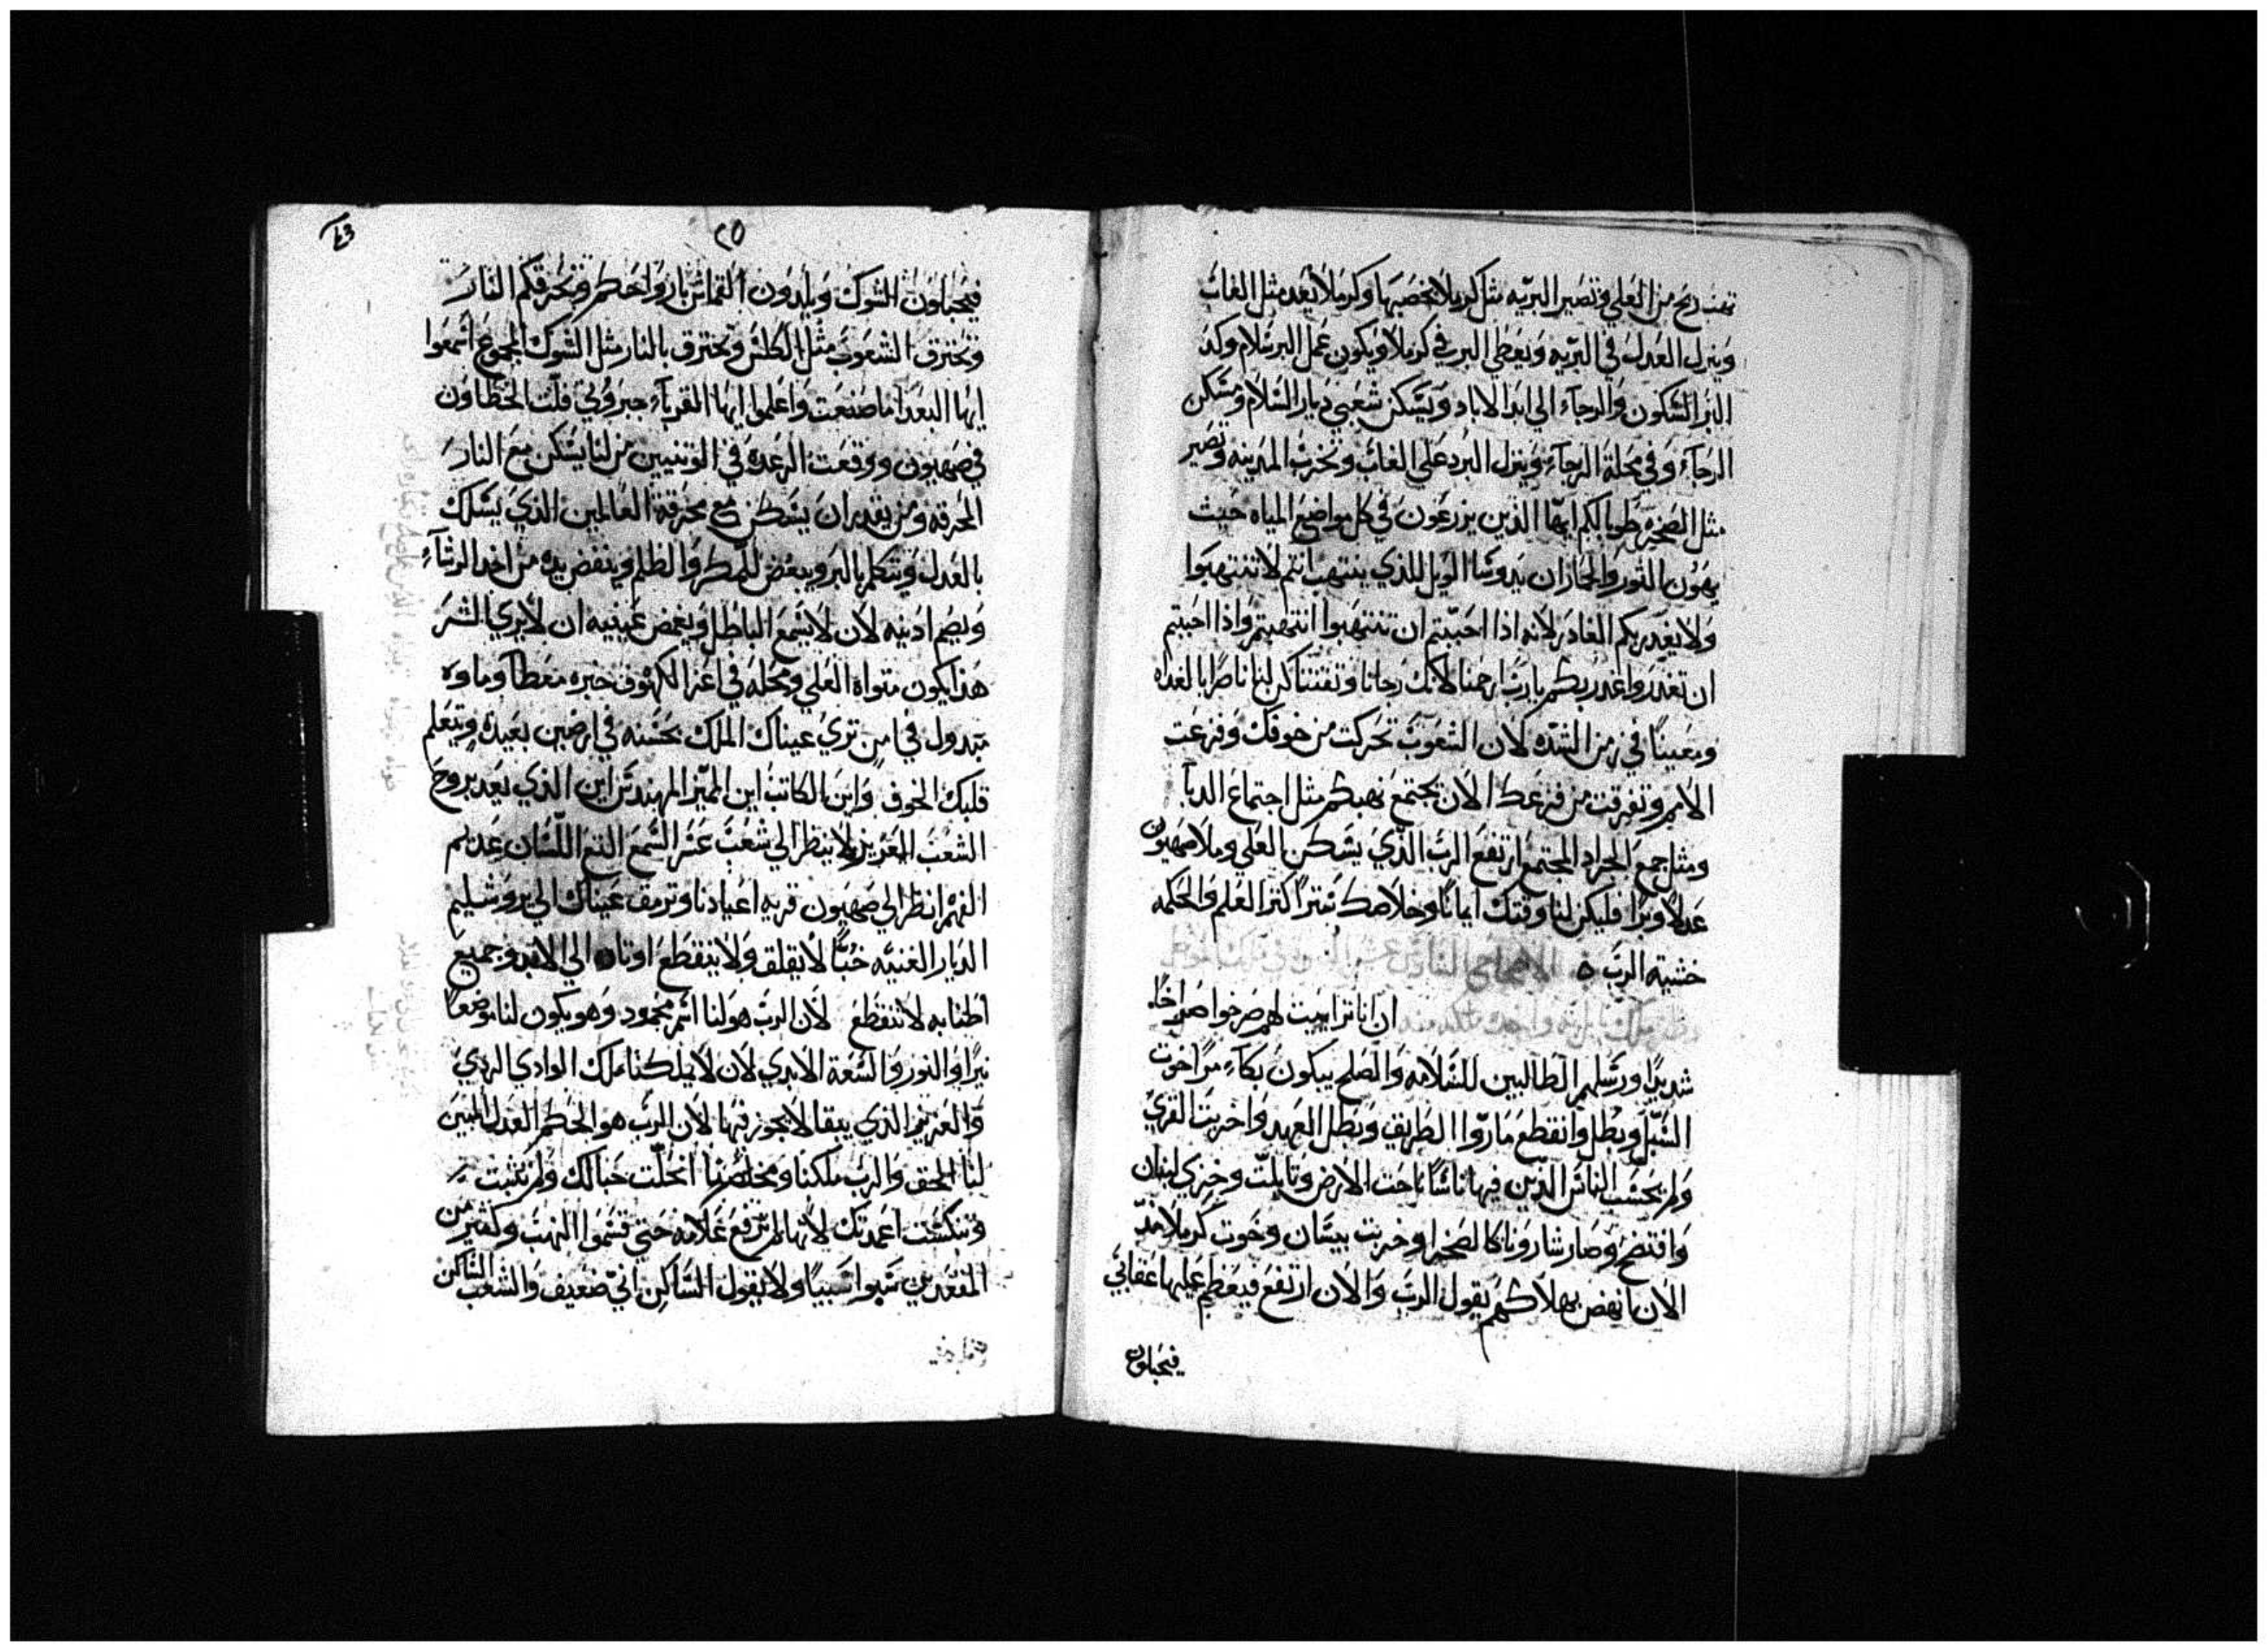 تهب ريح من العلي وتصير البريه مثل كرملا بخصبها وكرملا يعد مثل الغاب
وينزل العدل في البريه ويعطي البر في كرملا ويكون عمل البر سلام وكد
البر السكون والرجاء الي ابد الاباد ويسكن شعبي ديار السلام ومسكن
الرجاء وفي محلة الرجاء وينزل البرد علي الغاب وتخرب المدينه وتصير
مثل الصخره طوبا لكم ايها الذين يزرعون في كل مواضع المياه حيث
يهون الثور والحمار ان يدوسا الويل للذي ينتهب انتم لا تنتهبوا
ولا يغدر بكم الغادر لانه اذا احببتم ان تنتهبوا انتهبتم واذا احببتم
ان تغدروا غدر بكم يارب ارحمنا لانك رجانا وثقتنا كن لنا ناصرا بالغداه
ومعينا في زمن الشده لان الشعوب تحركت من خوفك وفزعت
الامم وتفرقت من فزعك الان يجتمع نهبكم مثل اجتماع الدبا
ومثل جمع الجراد المجتمع ارتفع الرب الذي يسكن العلي وملا صهيون
عدلا وبرا فليكن لنا وقتك ايمانا وخلاصك سترا كنز العلم والحكمه
خشية الرب ه
ان اناترا يبيت لهم صرخوا صراخا
شديدا ورسلهم الطالبين للسلامه والصلح يبكون بكاء مرا خوت
السبل وبطل وانقطع ماروا الطريق وبطل العهد واخربت القري
ولم يحسب الناس الذين فيها ناسا ناحت الارض وتابلت وخزي لبنان
وافتضح وصار شارونا كالصخرا وخربت بيسان وخوت كرملا منذ
الان انهض بهلاكهم يقول الرب والان ارتفع فيعظم عليها عقابي
فيحبلون
٢٥
فيحبلون الشوك ويلدون القماش بارواحكم وتحرقكم النار
وتحترق الشعوب مثل الكلس وتحترق بالنار مثل الشوك المجموع اسمعوا
ايها البعدا ما صنعت واعلموا ايها القرباء جبروتي فلت الخطاون
في صهيون ووقعت الرعده في الوثنيين من لنا يسكن مع النار
المحرقه ومن يقدر ان يسكن مع محرقة العالمين الذي يسلك
بالعدل ويتكلم بالبر ويبغض المكر والظلم وينفض يده من اخد الرشاء
ويصم ادنيه لان لا يسمع الباطل ويغمض عينيه ان لا يري الشر
هذا يكون متواه العلي ومحله في اعز الكهوف خبزه معطا وماوه
مبدول في امن تري عيناك الملك بحسنه في ارضين بعيده ويتعلم
قلبك الخوف واين الكاتب اين المميز المهندس اين الذي يعد بروح
الشعب العزيز لا ينظر الي شعب عسر السمع التع اللسان عديم
الفهم انظر الي صهيون قرية اعيادنا وترمق عيناك الي يروشليم
الديار الغنيه خبا لا يقلق ولا ينقطع اوتاده الي الابد وجميع
اطنابه لا تنقطع لان الرب هو لنا اسم محمود وهو يكون لنا موضعا
نيرا والنور والسعة الابدي لان لا يملكنا ملك الوادي الردي
والعزيز الذي يبقا لا يجوز فيها لان الرب هو الحكم العدل المبين
لنا الحق والرب ملكنا ومخلصنا انحلت حبالك ولم تثبت
وتنكست اعمدتك لانها لم ترفع علامه حتي قسموا النهب وكثير من
المقعدين سبوا سبيا ولا يقول الساكن اني ضعيف والشعب الساكن